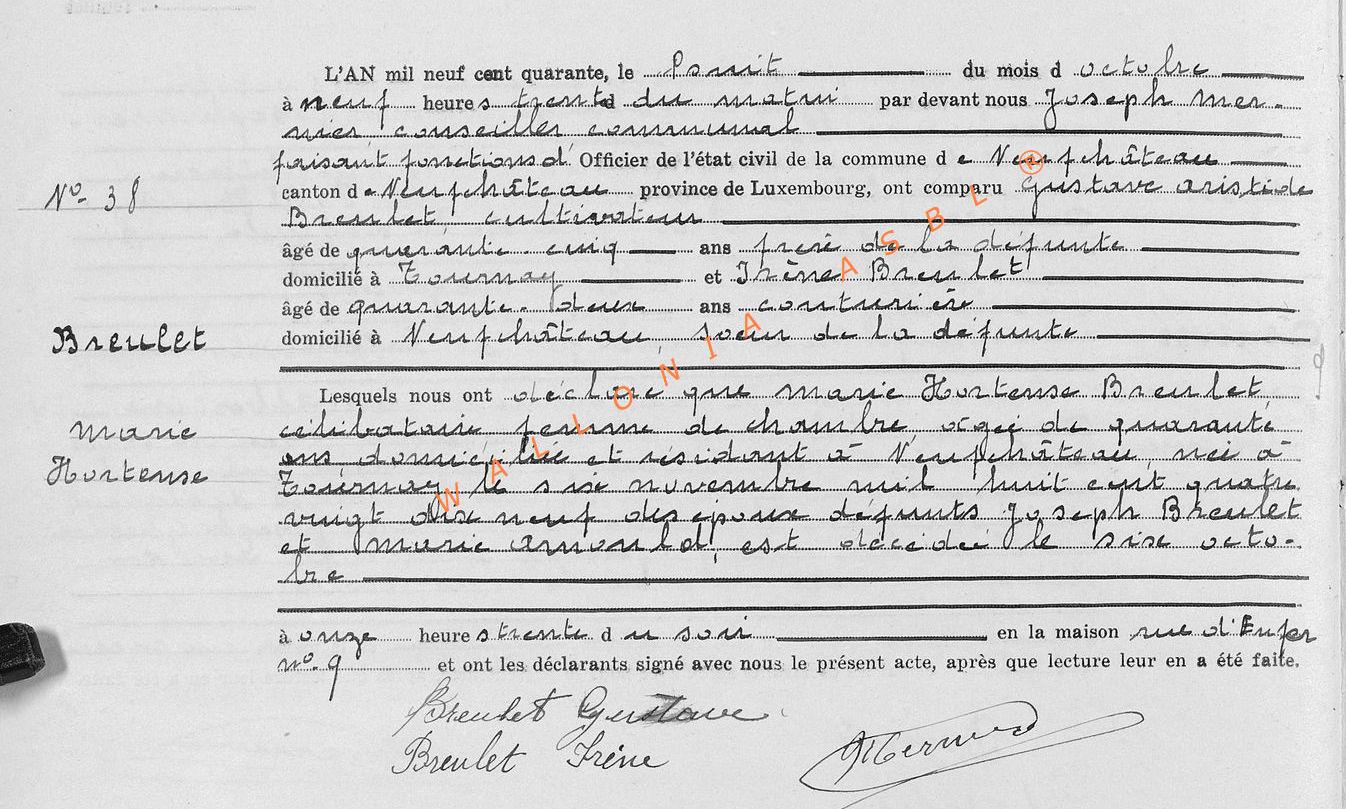 L'AN mil neuf cent quarante, le huit du mois d octobre
à neuf heures trente du matin par devant nous Joseph Mer-
nier conseiller communal
faisant fonctions d'Officier de l'état civil de la commune de Neufchâteau
N° 38
canton de Neufchâteau province de Luxembourg, ont comparu Gustave Aristide
Breulet, cultivateur
âgé de quarante-cinq ans frère de la défunte
domicilié à Tournay et Irène Breulet
âgé de quarante-deux ans couturière
Breulet
domicilié à Neufchâteau, sœur de la défunte
Lesquels nous ont déclaré que Marie Hortense Breulet,
Marie
célibataire femme de chambre, âgée de quarante
Hortense
ans, domiciliée et résidant à Neufchâteau, née à
Tournay, le six novembre mil huit cent quatre
vingt dix neuf des époux défunts Joseph Breulet
et Marie Arnould, est décédée le six octo-
bre
à onze heures trente du soir en la maison rue d'Enfer
n° 9 et ont les déclarants signé avec nous le présent acte, après que lecture leur en a été faite.
Breulet Gustave
Breulet Irène
JMernier
WALLONIA ASBL ®